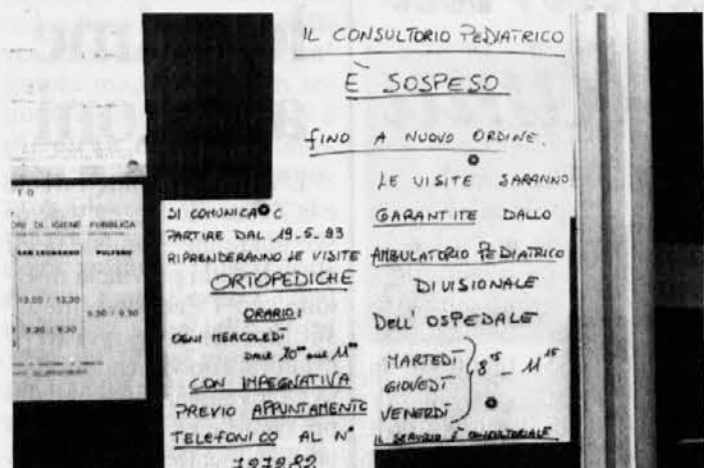 IL CONSULTORIO PEDIATRICO
È SOSPESO
FINO A NUOVO ORDINE.
LE VISITE SARANNO
GARANTITE DALLO
AMBULATORIO PEDIATRICO
DIVISIONALE
DELL' OSPEDALE
MARTEDÌ
GIOVEDÌ
VENERDÌ
8¹⁵ - 11¹⁵
IL SERVIZIO È CONSULTORIALE
SI COMUNICA C
PARTIRE DAL 19.5.93
RIPRENDERANNO LE VISITE
ORTOPEDICHE
ORARIO:
OGNI MERCOLEDÌ
DALLE 10⁰⁰ ALLE 11⁰⁰
CON IMPEGNATIVA
PREVIO APPUNTAMENTO
TELEFONICO AL N°
727282
DI IGIENE PUBBLICA
SAN LEONARDO PULFERO
9.30 / 9.50